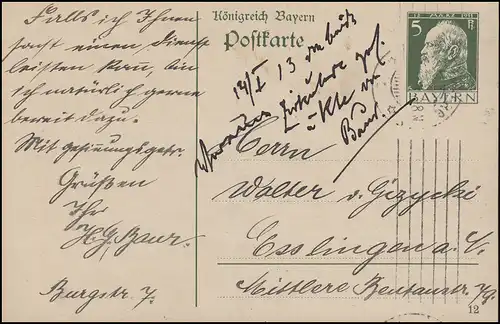 Falls ich Ihnen
sonst einen Dienst
leisten kan, bin
ich natürlich gerne
bereit dazu.
Mit gesinnungsgetr.
Grüßen
Ihr
H. G. Baur.
Burgstr. 7.
Königreich Bayern
Postkarte
12 MÄRZ 1911
5 Pf
BAYERN
14/I 13
Herrn
Walter v. Gizycki
Esslingen a. N.
Mittlere Beutaustr.
12